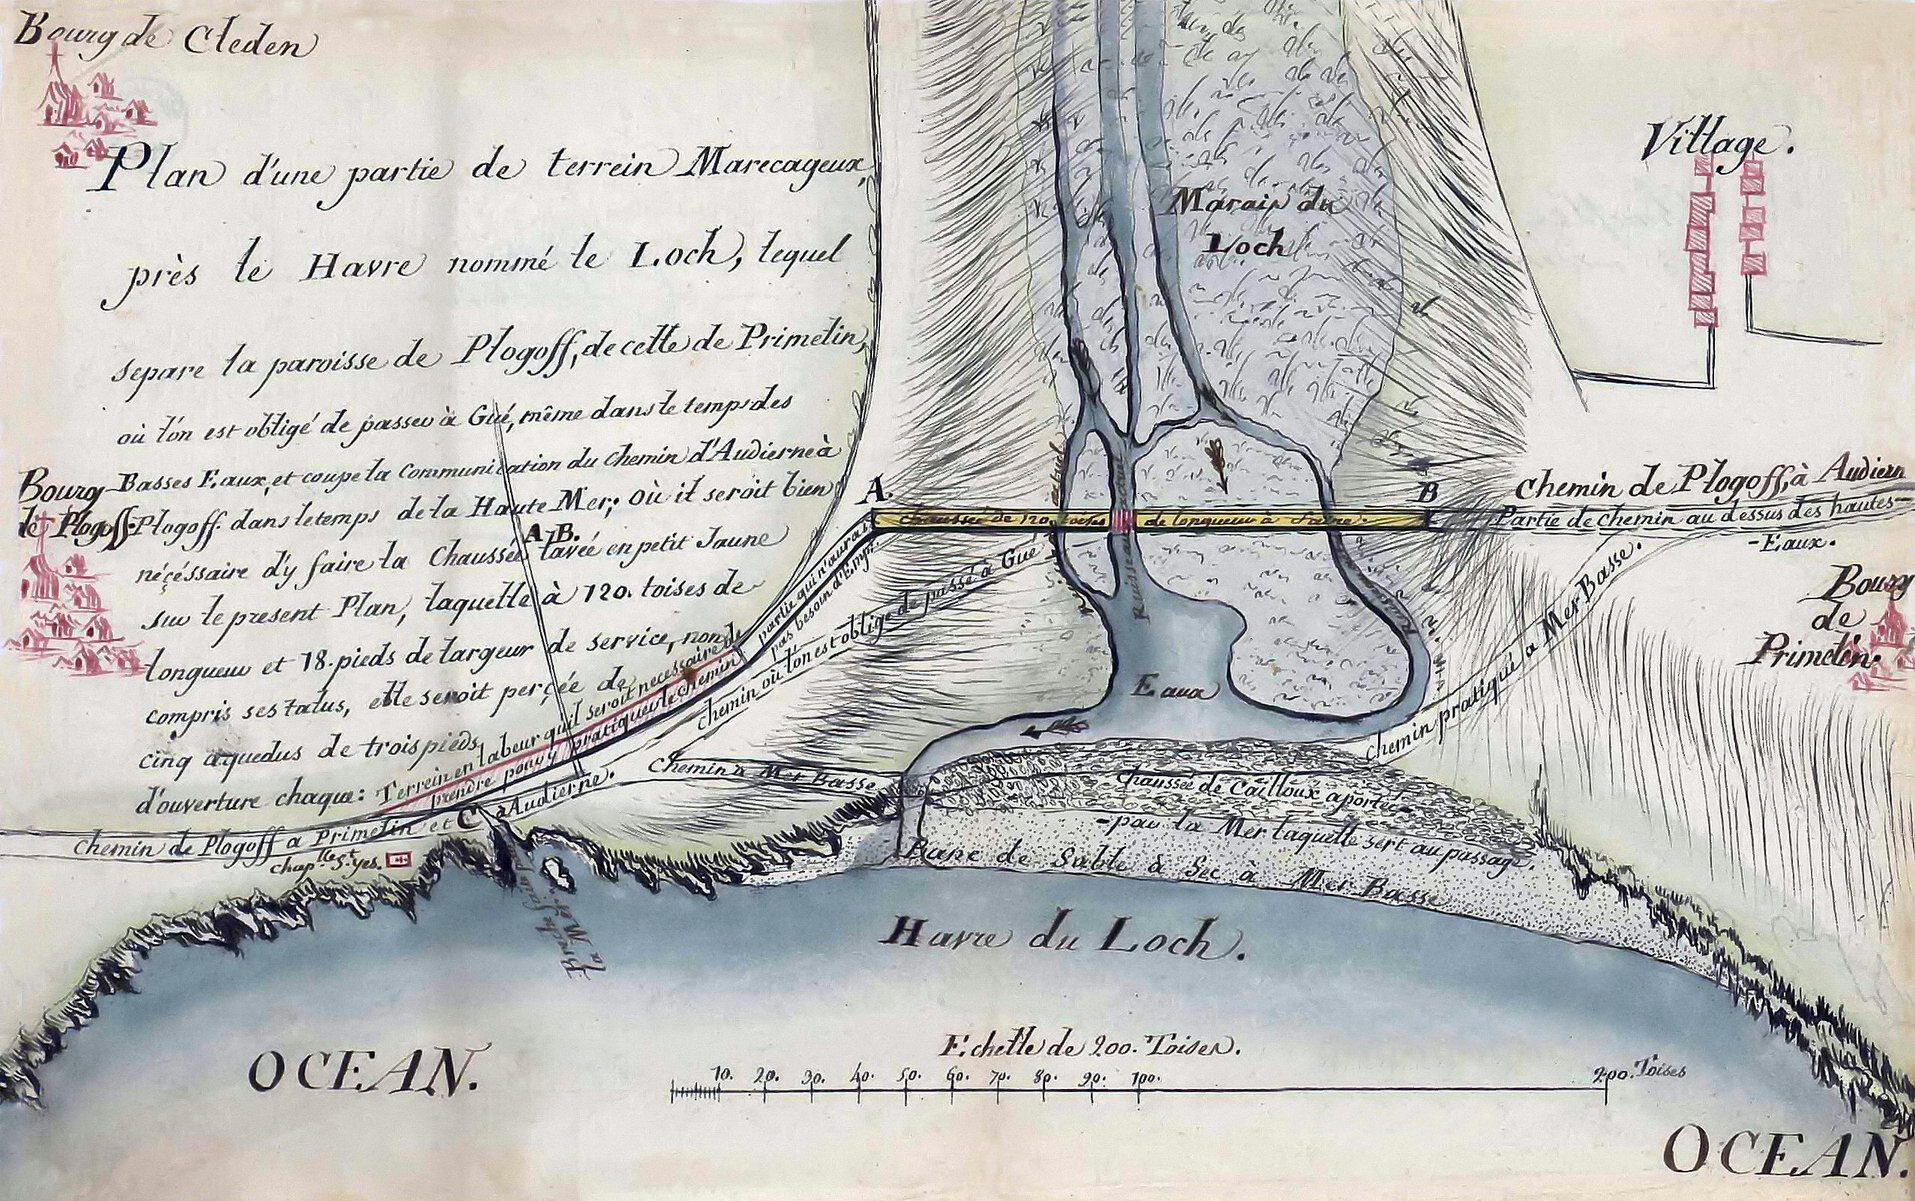 Bourg de Cleden
Plan d'une partie de terrein Marecageux,
près le Havre nommé le Loch, lequel
separe la paroisse de Plogoff, de celle de Primelin,
où l'on est obligé de passer à Gué, même dans le temps des
Basses Eaux, et coupe la Communication du Chemin d'Audierne à
Plogoff. dans le temps de la Haute Mer; où il seroit bien
néçéssaire d'y faire la Chaussée A.B. lavée en petit Jaune
sur le present Plan, laquelle à 120. toises de
longueur et 18. pieds de largeur de service, non
compris ses talus, elle seroit perçée de
cinq aquedus de trois pieds
d'ouverture chaque:
Bourg
de Plogoff.
Terrein en labeur qu'il seroit necessaire de
prendre pour y pratiquer le chemin
partie qui n'aura
pas besoin d'Emp.
chemin où l'on est obligé de passé à Gué
Chemin à Mer Basse
chemin de Plogoff a Primelin et à Audierne.
C
chap.lle S.t yes.
Breche faite p.
la Mer.
Marais du
Loch
Village.
A.
B
chaussée de 120. toises de longueur à faire.
Chemin de Plogoff, à Audiern
Partie de chemin au dessus des hautes
-Eaux.
Bourg
de
Primelin.
chemin pratiqué à Mer Basse.
Ruisseau
Eaux
chaussée de Cailloux aportée
-par la Mer laquelle sert au passage,
Banc de Sable à Sec à Mer Basse
Havre du Loch.
OCEAN.
Echelle de 200. Toises.
10. 20. 30. 40. 50. 60. 70. 80. 90. 100. 200. Toises
OCEAN.